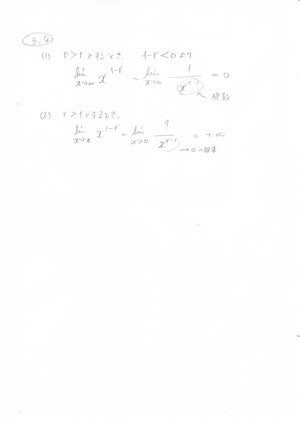 3.4
(1) r>1とするとき、 1-r<0より
lim x→∞ x^{1-r} = lim x→∞ 1/x^{r-1} = 0
(2) r>1とするとき、
lim x→0 x^{1-r} = lim x→0 1/x^{r-1} = +∞
→0へ収束